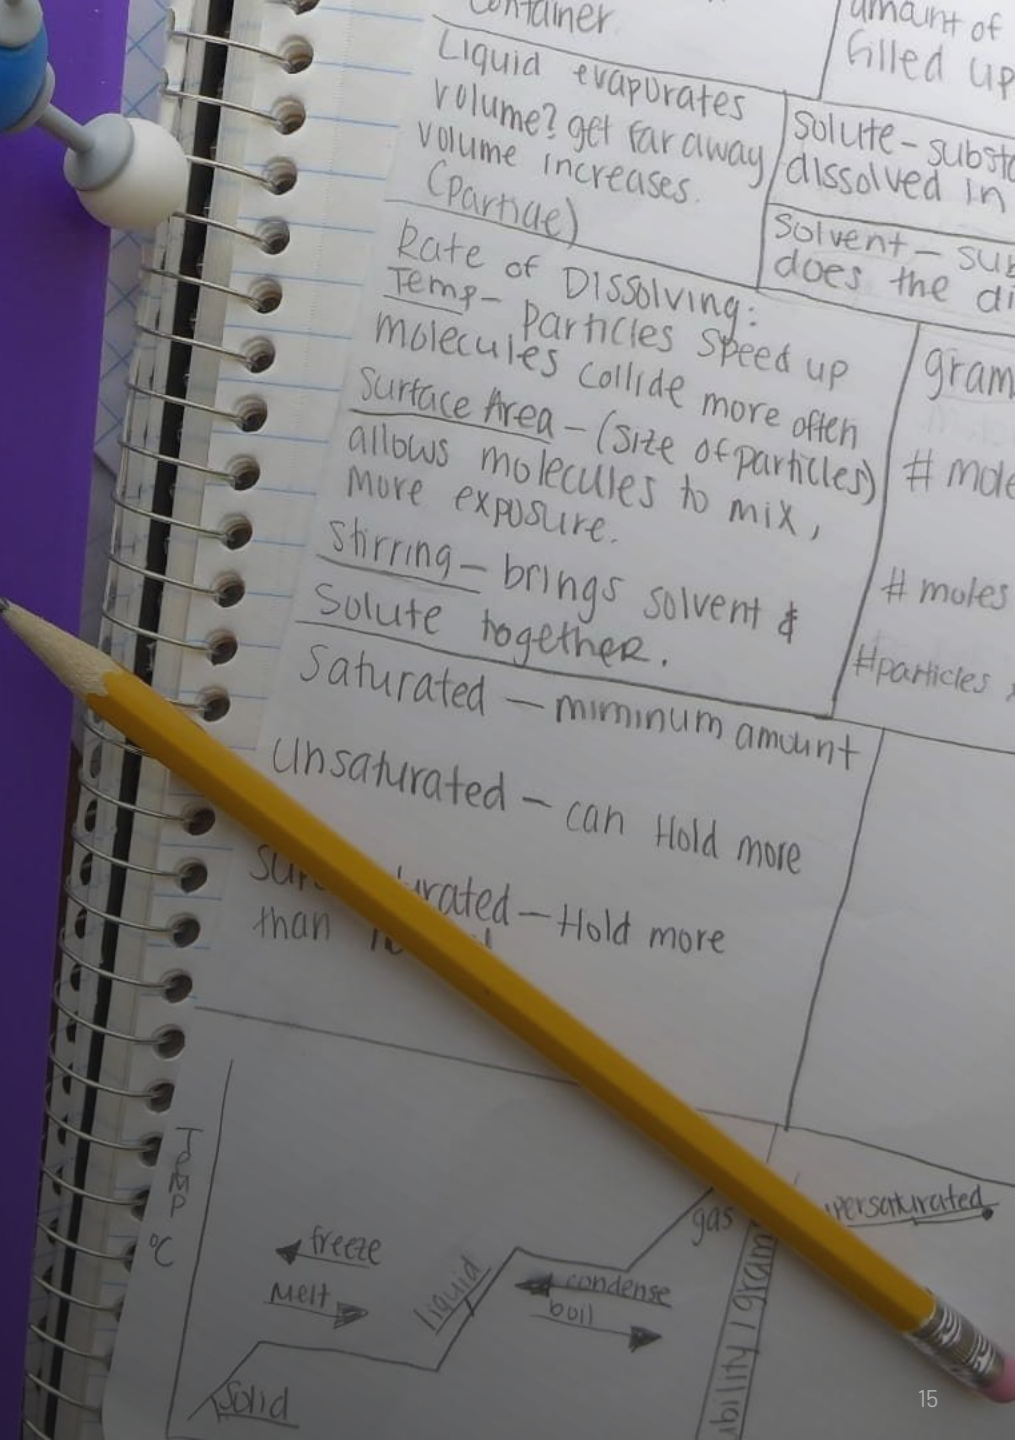 container.
amaint of
filled up
Liquid evapurates
volume? get far away
volume increases.
(partide)
solute - subst
dissolved in
Solvent - sub
does the di
Rate of Dissolving:
Temp - particles speed up
molecules collide more often
Surface Area - (size of particles)
allows molecules to mix,
more exposure.
Stirring - brings solvent &
Solute together.
gram
# mole
# moles
#particles
Saturated - miminum amount
Unsaturated - can Hold more
urated - Hold more
than
Temp
°C
freeze
Melt
Liquid
condense
boil
gas
Solid
persaturated
ability (gram
15